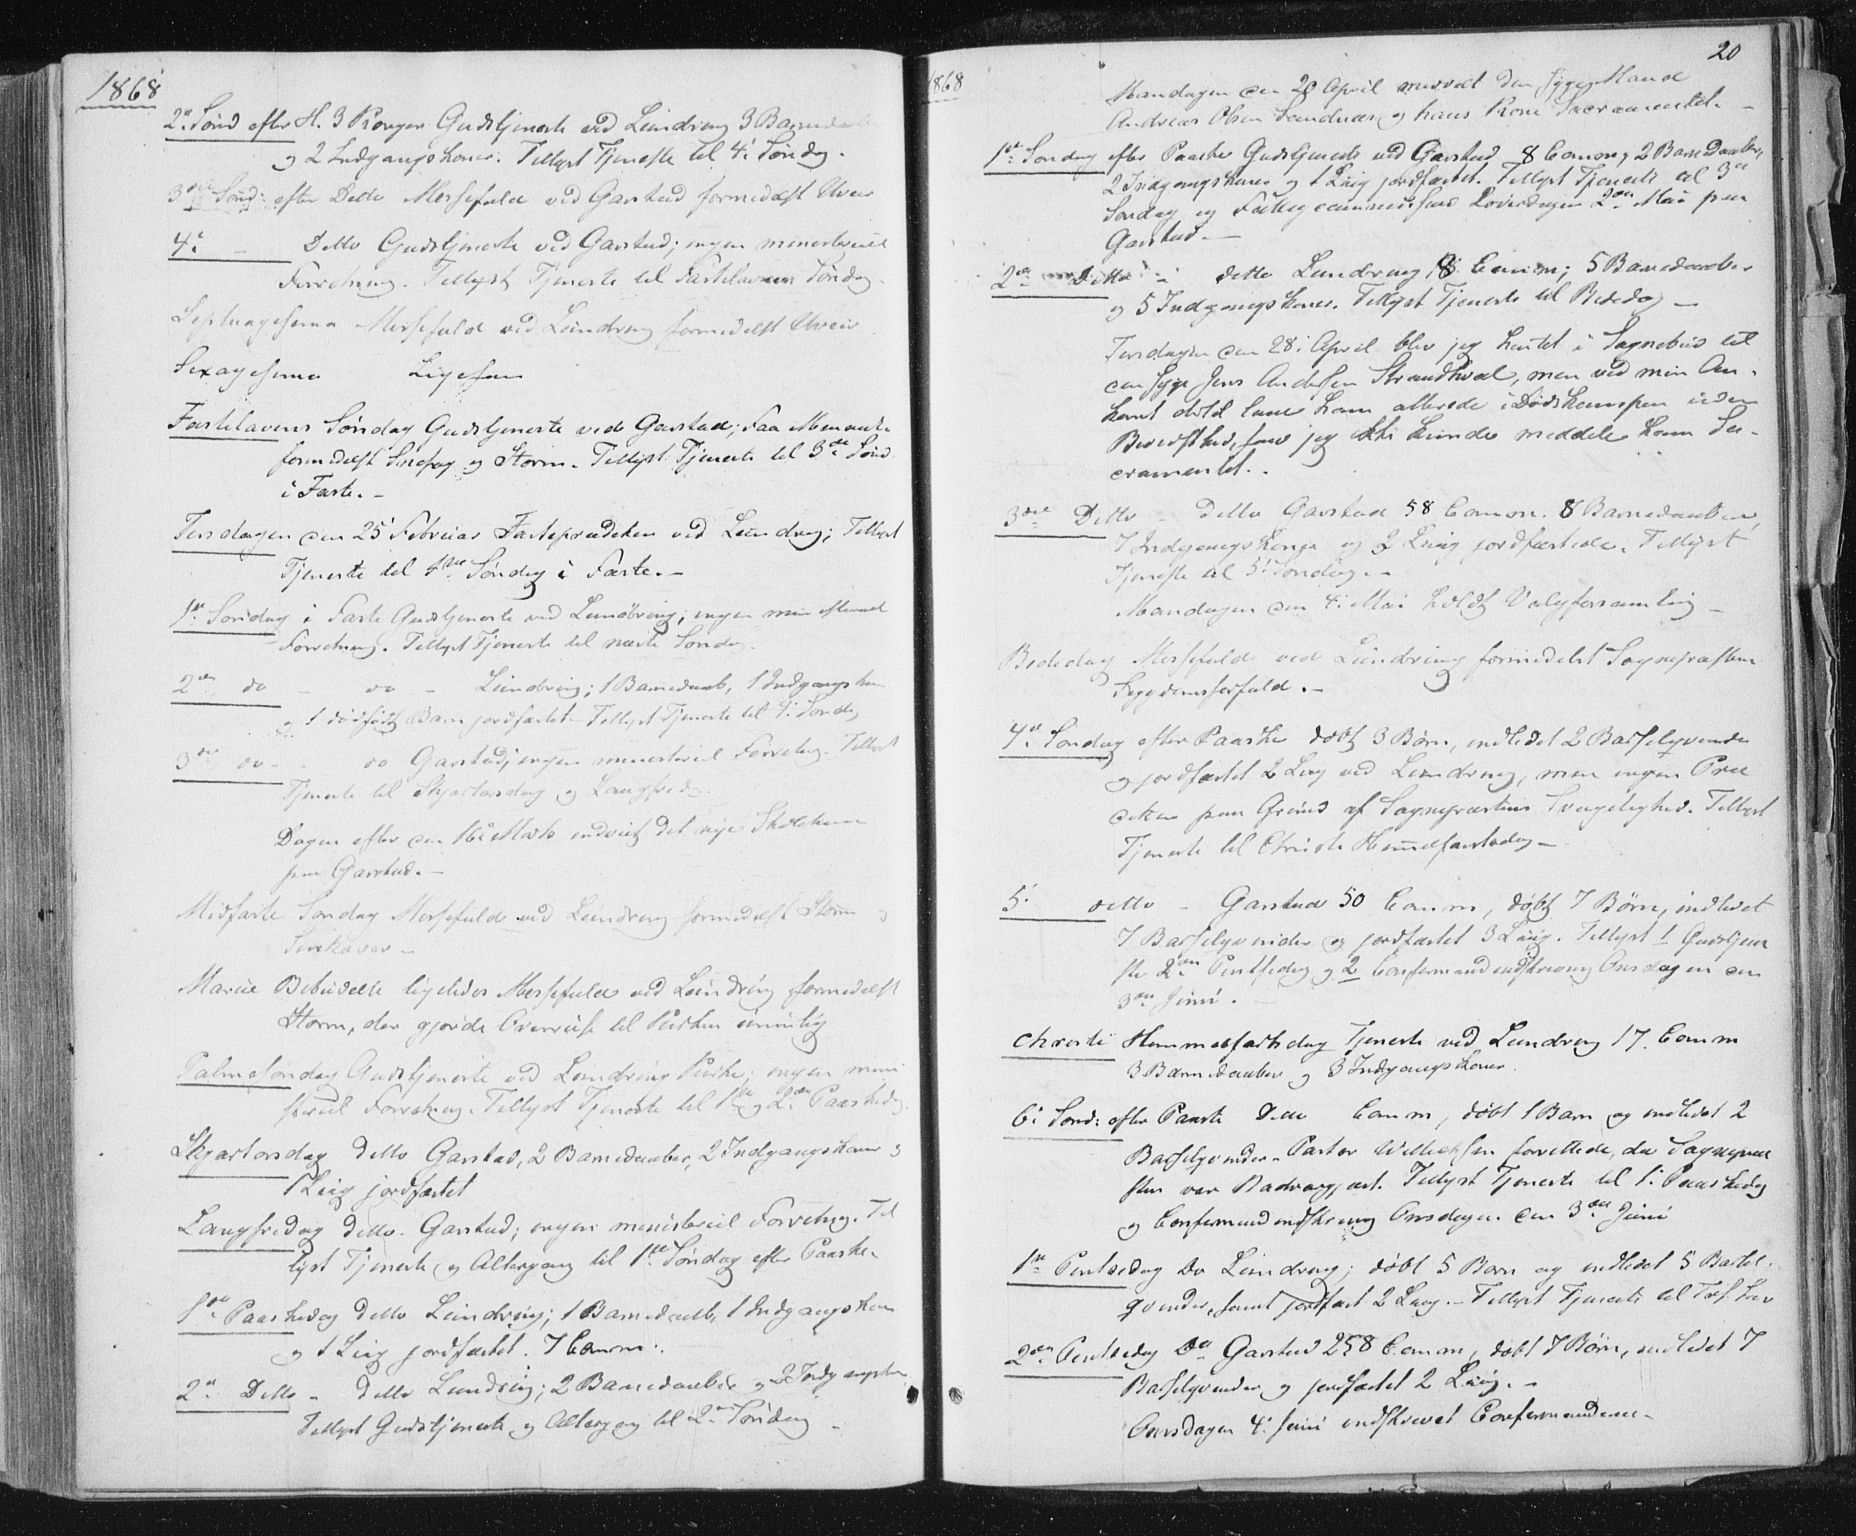 1868
2den Sønd efter H. 3 Konger Gudstjeneste ved Lundring 3 Barnedaabe
og 2 Indgangskoner. Tillyst Tjeneste til 4: Søndag.
3die Sønd: efter Ditto Messefald ved Garstad formedelst Uveir
4: — Ditto Gudstjeneste ved Garstad; ingen ministeriel
Forretning. Tillyst Tjeneste til Fastelavens Søndag.
Septuagesima Messefald ved Lundring formedelst Uveir
Sexagesima Ligesaa
Fastelavens Søndag Gudstjeneste ved Garstad; faa Mennesker
formedelst Snefog og Storm. Tillyst Tjeneste til 3die Sønd
i Faste. —
Tirsdagen den 25' Februar Fasteprædiken ved Lundring; Tillyst
Tjeneste til 1ste Søndag i Faste. —
1ste Søndag i Faste Gudstjeneste ved Lundring; ingen ministeriel
Forretning. Tillyst Tjeneste til næste Søndag.
2den do — do — Lundring; 1 Barnedaab, 1 Indgangskone
og 1 dødfødt Barn jordfæstet — Tillyst Tjeneste til 4: Søndag
3die do — do Garstad; ingen ministeriel Forretning. Tillyst
Tjeneste til Skjærtorsdag og Langfredag.
Dagen efter den 16: Marts indviet det nye Skolehuus
paa Garstad. —
Midfaste Søndag Messefald ved Lundring formedelst Storm og
Snekaver —
Mariæ Bebudelse ligeledes Messefald ved Lundring formedelst
Storm, der gjorde Overreise til Kirken umulig
Palmesøndag Gudstjeneste ved Lundring Kirke; ingen mini
steriel Forretning. Tillyst Tjeneste til 1ste og 2den Paaskedag.
Skjærtorsdag ditto Garstad, 2 Barnedaaber, 2 Indgangskoner og
1 Liig jordfæstet
Langfredag ditto. Garstad; ingen ministeriel Forretning. Til
lyst Tjeneste og Altergang til 1ste Søndag efter Paaske.
1ste Paaskedag ditto Lundring; 1 Barnedaab, 1 Indgangskone
og 1 Liig jordfæstet. 7 Comm.
2den Ditto — ditto Lundring; 2 Barnedaaber og 2 Indgangskoner
Tillyst Gudstjeneste og Altergang til 2den Søndag —
1868
20
Mandagen den 20 April meddelt den syge Mand
Andreas Olsen Sandnæs og hans Kone Sacramentet. —
1ste Søndag efter Paaske Gudstjeneste ved Garstad 8 Comm, 2 Barnedaaber,
2 Indgangskoner og 1 Liig jordfæstet. Tillyst Tjeneste til 3die
Søndag og Fattigcommission Løverdagen 2den Mai paa
Garstad. —
2den Ditto — ditto Lundring, 8 Comm; 5 Barnedaaber
og 5 Indgangskoner. Tillyst Tjeneste til Bededag —
Tirsdagen den 28: April blev jeg hentet i Sognebud til
den syge Jens Andersen Strandhval, men ved min An-
komst dertil laae ham allerede i Dødskampen uden
Bevidsthed, saa jeg ikke kunde meddele ham Sa-
cramentet. —
3die Ditto — ditto Garstad 58 Comm. 8 Barnedaaber,
7 Indgangskoner og 2 Liig jordfæstede. Tillyst
Tjeneste til 5: Søndag. —
Mandagen den 4: Mai holdt Valgforsamling —
Bededag Messefald ved Lundring formedelst Sognepræstens
Sygdomsforfald. —
4de Søndag efter Paaske døbt 3 Børn, indledet 2 Barselqvinder
og jordfæstet 2 Liig ved Lundring, men ingen Præ
diken paa Grund af Sognepræstens Svagelighed. Tillyst
Tjeneste til Christi Himmelfartsdag —
5: ditto — Garstad 50 Comm, døbt 7 Børn, indledet
7 Barselqvinder og jordfæstet 3 Liig. Tillyst 1 Gudstjene
ste 2den Pintsedag og 2 Confirmandindskrivning Onsdagen den
3die Juni. —
Christi Himmelfartsdag Tjeneste ved Lundring 17 Comm
3 Barnedaaber og 3 Indgangskoner.
6: Sønd: efter Paaske Ditto Comm, døbt 1 Barn og indledet 2
Barselqvinder. Pastor Wellechsen forrettede, da Sognepræ
sten var
Tillyst Tjeneste til 1: Paaskedag
og Confirmandindskrivning Onsdagen den 3die Juni
1ste Pintsedag Do Lundring; døbt 5 Børn og indledet 5 Barsel-
qvinder, samt jordfæst 2 Liig. — Tillyst Tjeneste til
2den Pintsedag Do Garstad 258 Comm, døbt 7 Børn, indledet 7
Barselqvinder og jordfæstet 2 Liig. —
Onsdagen 4: Juni indskrevet Confirmanderne —